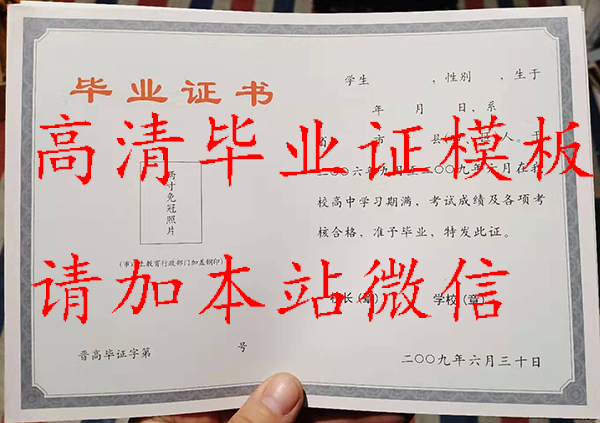 毕业证书
学生　　　，性别　　，生于
年　月　日，系
省　　市　　县（　）人。于
二〇〇六年九月至二〇〇九年六月在我
校高中学习期满，考试成绩及各项考
核合格，准予毕业，特发此证。
两寸免冠照片
教育行政部门加盖钢印）
校长（章）　　学校（章）
晋高毕证字第　　　　号
二〇〇九年六月三十日
高清毕业证模板
请加本站微信